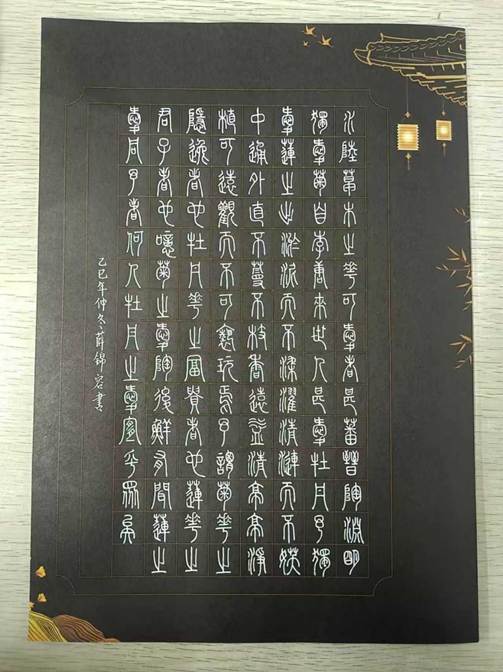 水陸草木之華可愛者甚蕃晉陶淵明
獨愛菊自李唐來世人甚愛牡丹予獨
愛蓮之出淤泥而不染濯清漣而不妖
中通外直不蔓不枝香遠益清亭亭淨
植可遠觀而不可褻玩焉予謂菊華之
隱逸者也牡丹華之富貴者也蓮華之
君子者也噫菊之愛陶後鮮有聞蓮之
愛同予者何人牡丹之愛宜乎眾矣
乙巳年仲冬薛錦容書